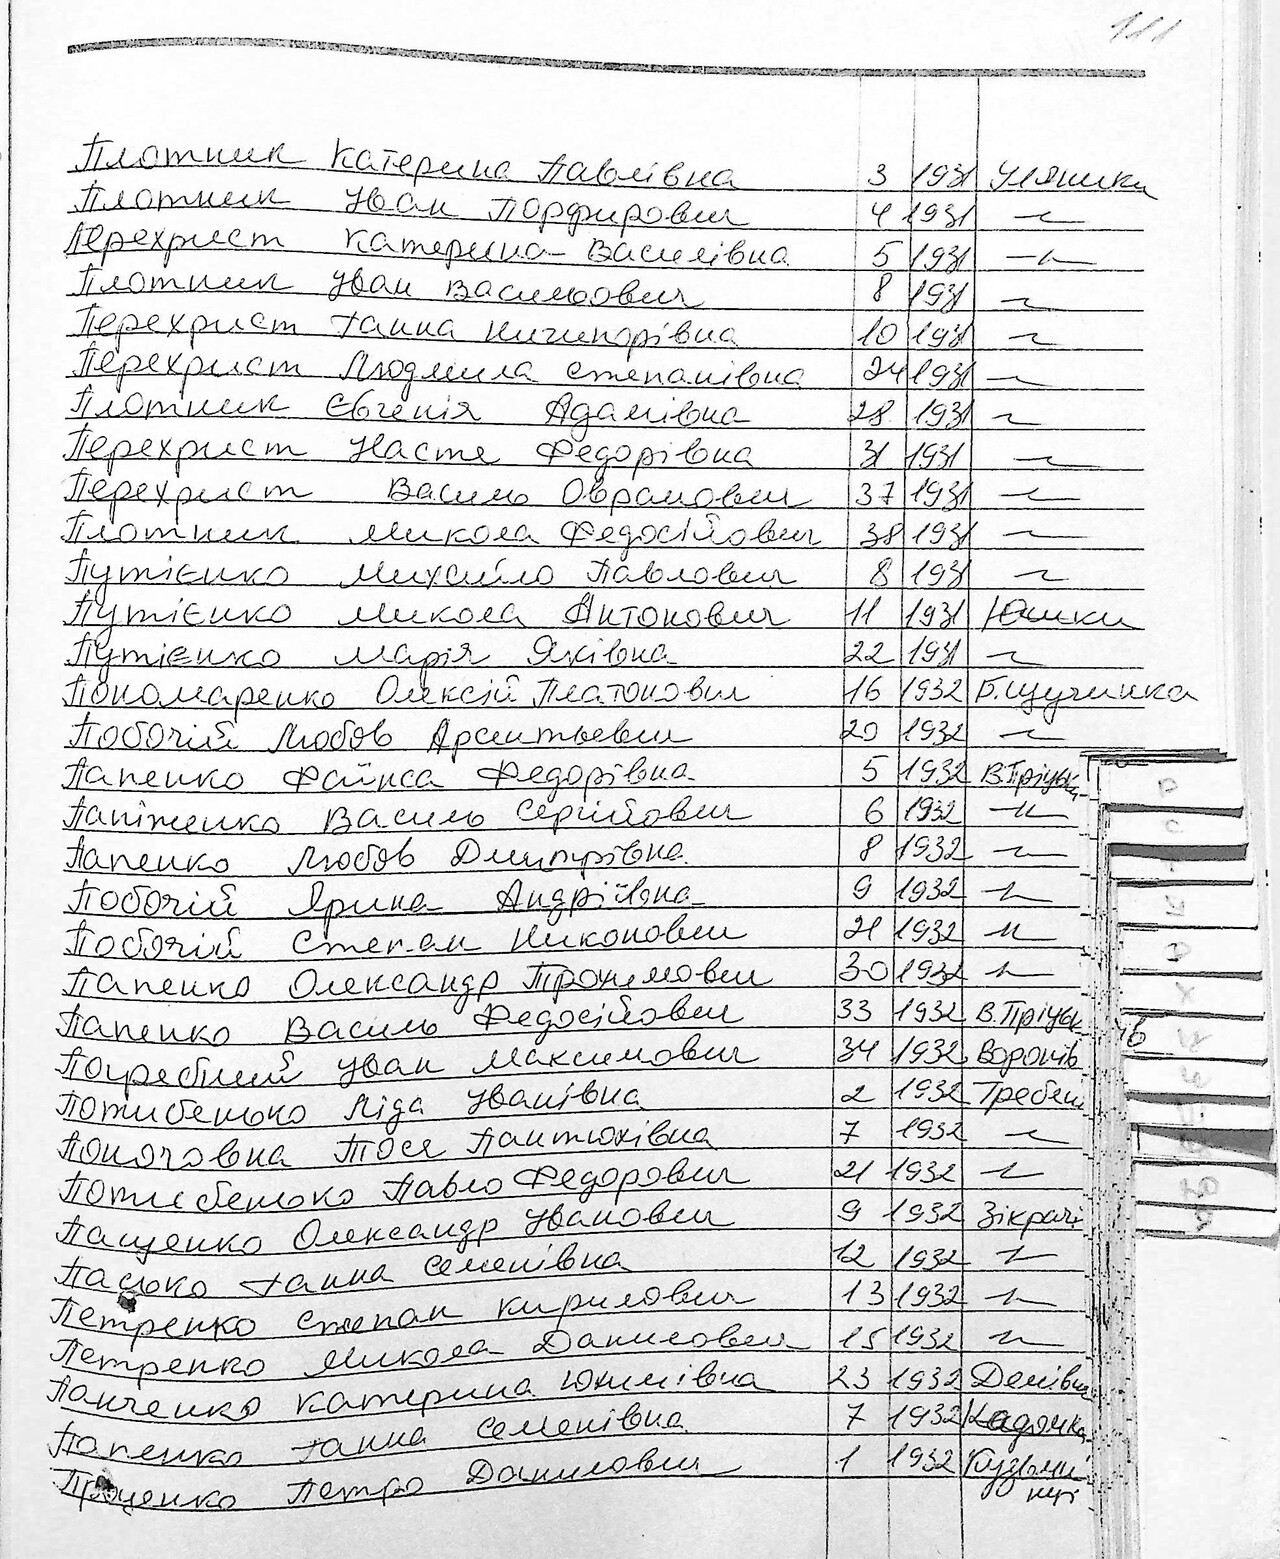 111
Плотник Катерина Павлівна 3 1931 Уляники
Плотник Іван Порфирович 4 1931 —〃—
Перехрист Катерина Василівна 5 1931 —〃—
Плотник Іван Васильович 8 1931 —〃—
Перехрист Ганна Ничипорівна 10 1931 —〃—
Перехрист Людмила Степанівна 24 1931 —〃—
Плотник Євгенія Адамівна 28 1931 —〃—
Перехрист Настя Федорівна 31 1931 —〃—
Перехрист Василь Оврамович 37 1931 —〃—
Плотник Микола Федосійович 38 1931 —〃—
Путієнко Михайло Павлович 8 1931 —〃—
Путієнко Микола Антонович 11 1931 Юшки
Путієнко Марія Яківна 22 1931 —〃—
Пономаренко Олексій Платонович 16 1932 Б.Щучинка
Побочій Любов Арсентьевич 20 1932 —〃—
Папенко Файнса Федорівна 5 1932 В.Пріцьк
Папіженко Василь Сергійович 6 1932 —〃—
Папенко Любов Дмитрівна 8 1932 —〃—
Побочій Ярина Андріївна 9 1932 —〃—
Побочій Степан Никонович 21 1932 —〃—
Папенко Олександр Трохимович 30 1932 —〃—
Папенко Василь Федосійович 33 1932 В.Пріцьк
Погребний Іван Максимович 34 1932 Воронів
Потибенько Ліда Іванівна 2 1932 Гребен
Тося Пантюхівна 7 1932 —〃—
Потибенько Павло Федорович 21 1932 —〃—
Пащенко Олександр Іванович 9 1932 Зікрачі
Пацько Ганна Семенівна 12 1932 —〃—
Петренко Степан Кирилович 13 1932 —〃—
Петренко Микола Данилович 15 1932 —〃—
Панченко Катерина Юхимівна 23 1932 Денівц
Папенко Ганна Семенівна 7 1932 Кадомка
Проценко Петро Данилович 1 1932 Кузьмин
ці